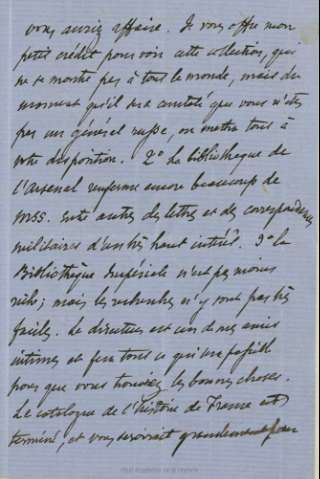 vous auriez affaire. Je vous offre mon
petit crédit pour voir cette collection, qui
ne se montre pas à tout le monde, mais du
moment qu'il sera constaté que vous n'êtes
pas un général russe, on mettra tout à
votre disposition. 2° La bibliothèque de
l'Arsenal renferme encore beaucoup de
MSS. Entre autres des lettres et des correspondances
militaires d'un très haut intérêt. 3° la
Bibliothèque Impériale n'est pas moins
riche; mais les recherches n'y sont pas très
faciles. Le directeur est un de mes amis
intimes et fera tout ce qui est possible
pour que vous trouviez les bonnes choses.
Le catalogue de l'histoire de France est
terminé, et vous servirait grandement pour